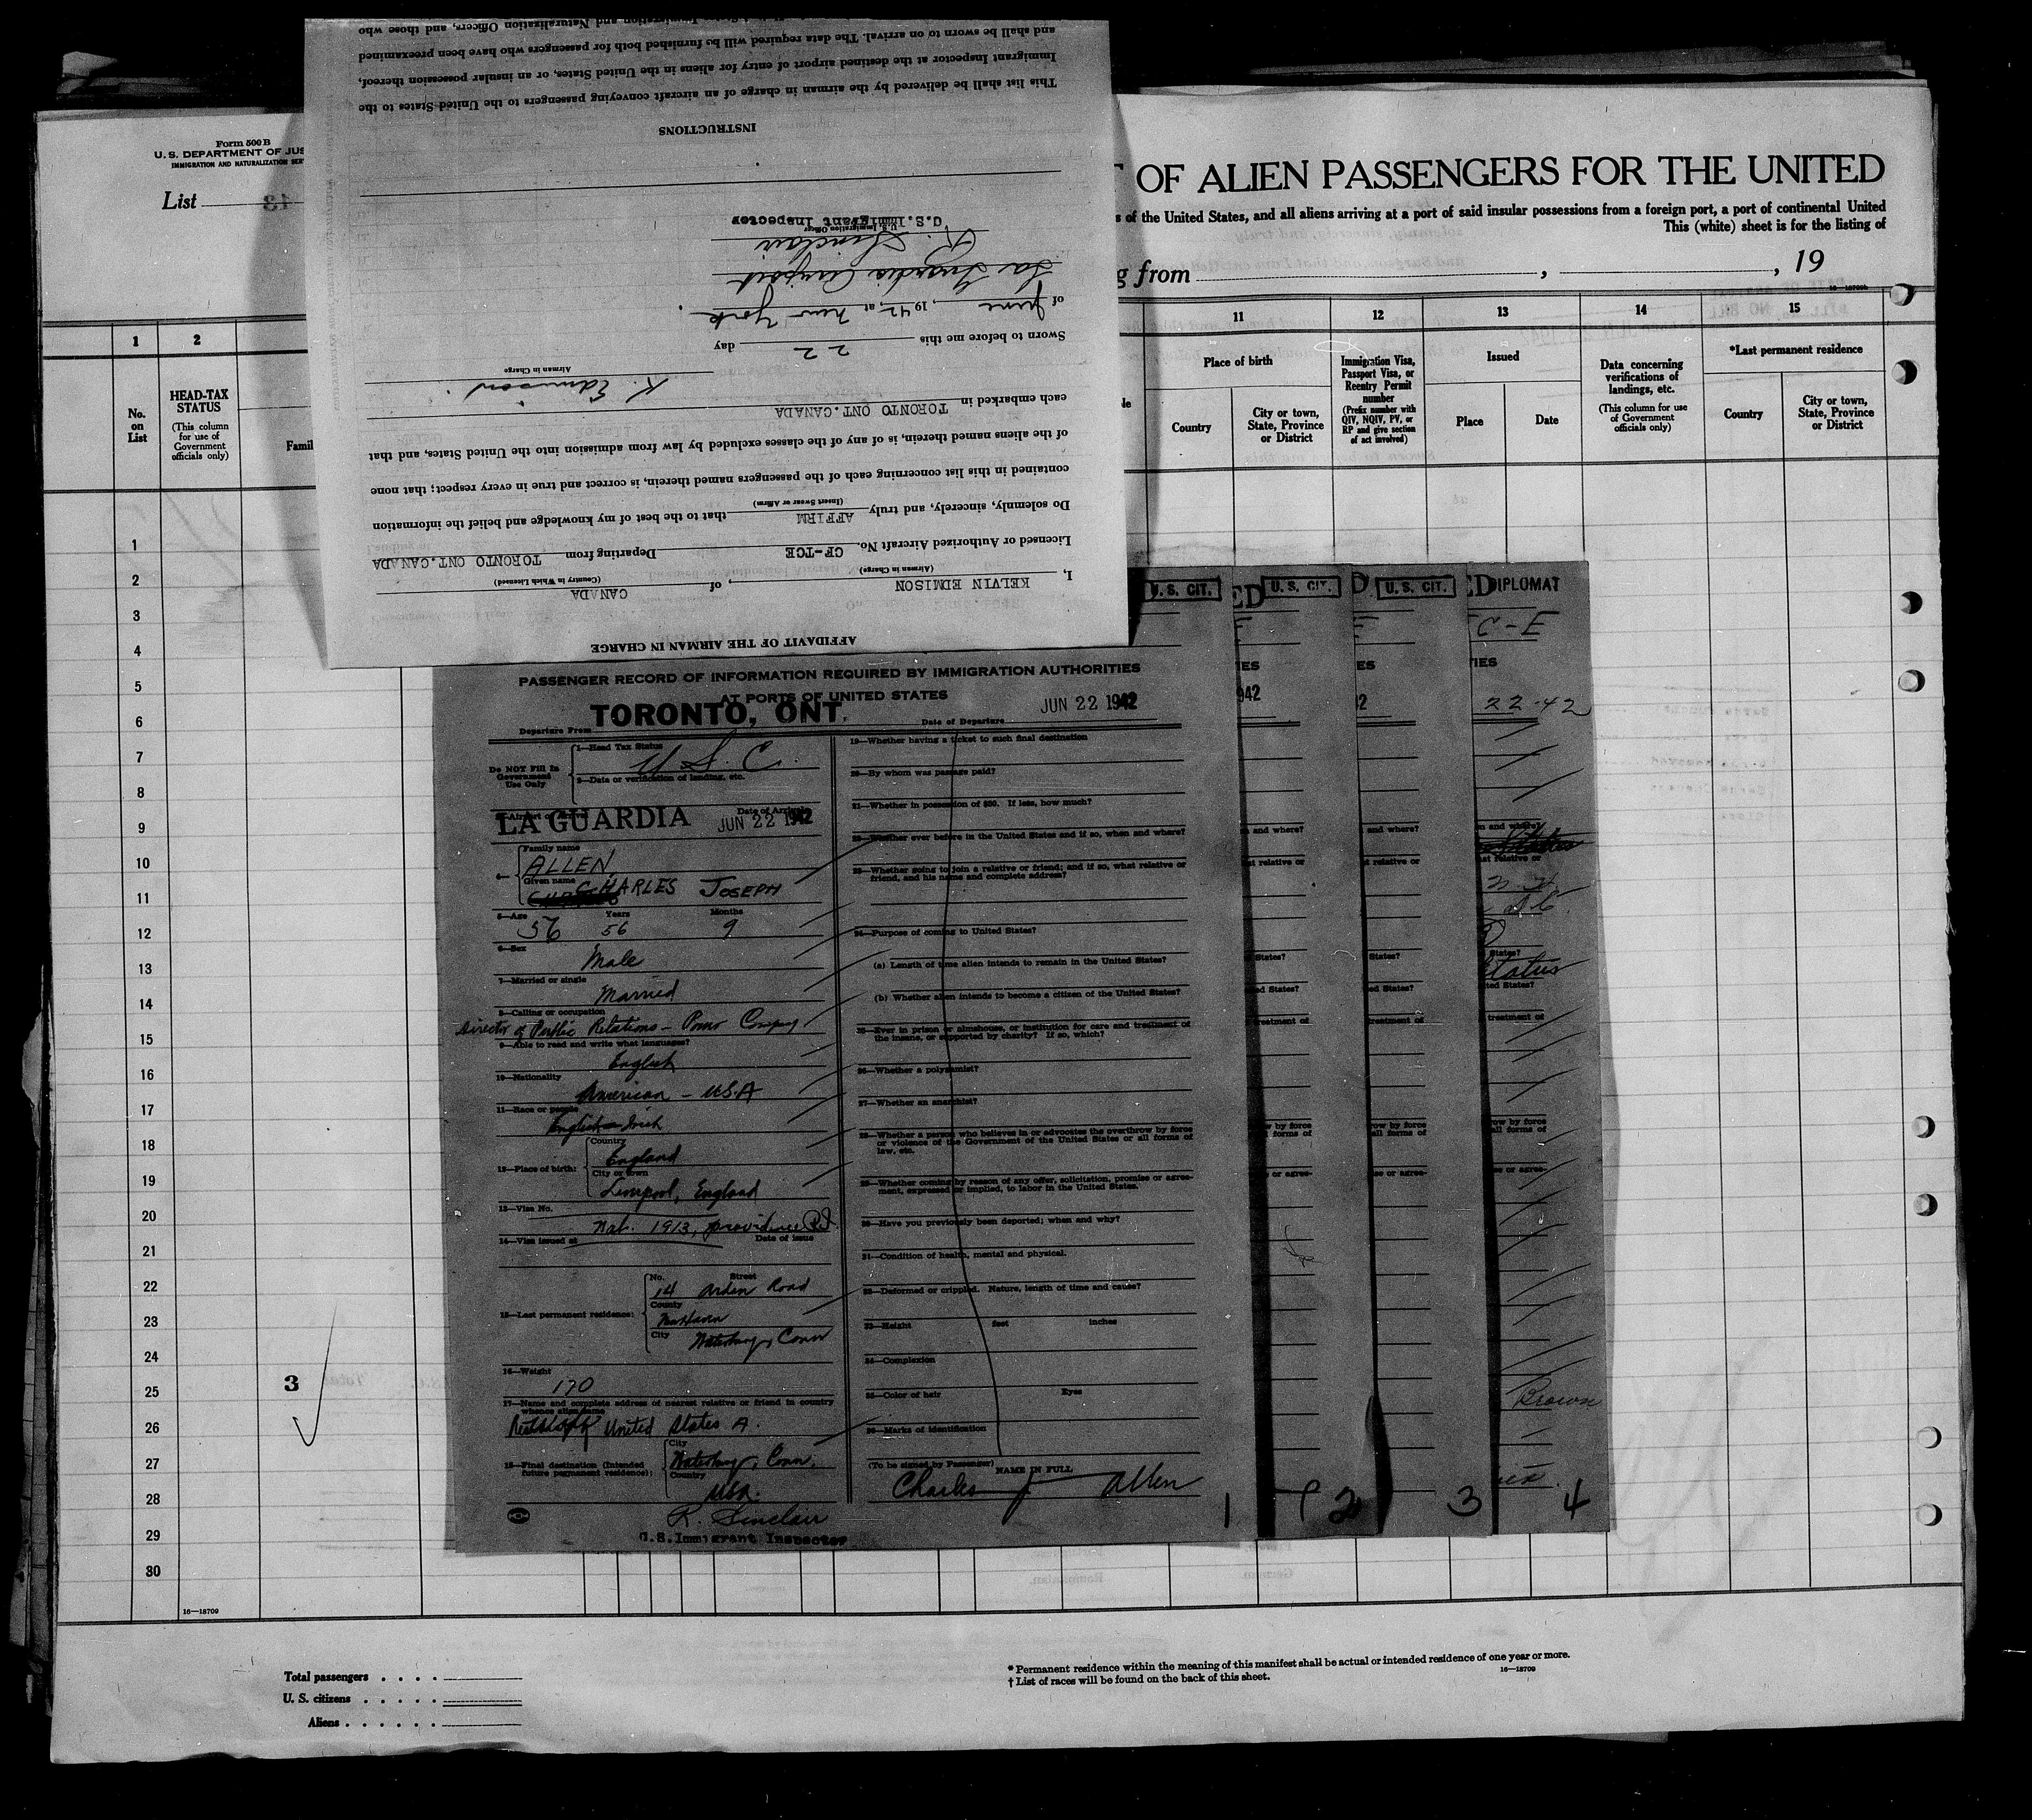 Form 500 B
U. S. DEPARTMENT OF JUS
IMMIGRATION AND NATURALIZATION SER
List
T OF ALIEN PASSENGERS FOR THE UNITED
s of the United States, and all aliens arriving at a port of said insular possessions from a foreign port, a port of continental United
This (white) sheet is for the listing of
g from , , 19
1 2 11 12 13 14 15
No. on List
HEAD-TAX STATUS
(This column for use of Government officials only)
Famil
Place of birth
Country
City or town, State, Province or District
Immigration Visa, Passport Visa, or Reentry Permit number
(Prefix number with QIV, NQIV, PV, or RP and give section of act involved)
Issued
Place
Date
Data concerning verifications of landings, etc.
(This column for use of Government officials only)
*Last permanent residence
Country
City or town, State, Province or District
1
2
3
4
5
6
7
8
9
10
11
12
13
14
15
16
17
18
19
20
21
22
23
24
25
26
27
28
29
30
3
16—18709
Total passengers . . . .
U. S. citizens . . . . .
Aliens . . . . . .
* Permanent residence within the meaning of this manifest shall be actual or intended residence of one year or more.
† List of races will be found on the back of this sheet.
16—18709
AFFIDAVIT OF THE AIRMAN IN CHARGE
I, KELVIN EDMISON, of CANADA
(Airman in Charge) (Country in Which Licensed)
Licensed or Authorized Aircraft No. CF-TCE Departing from TORONTO ONT.CANADA
Do solemnly, sincerely, and truly AFFIRM that to the best of my knowledge and belief the information
(Insert Swear or Affirm)
contained in this list concerning each of the passengers named therein, is correct and true in every respect; that none
of the aliens named therein, is of any of the classes excluded by law from admission into the United States, and that
each embarked in TORONTO ONT.CANADA
K. Edmison.
Airman in Charge
Sworn to before me this 22 day
of June, 1942, at New York.
La Guardia Airport
R. Sinclair
U.S. Immigration Officer
U.S.Immigrant Inspector
INSTRUCTIONS
This list shall be delivered by the airman in charge of an aircraft conveying passengers to the United States to the
Immigrant Inspector at the destined airport of entry for aliens in the United States, or an insular possession thereof,
and shall be sworn to on arrival. The data required will be furnished both for passengers who have been preexamined
Immigration and Naturalization Officers, and those who
U. S. CIT.
ED U. S. CIT.
D U. S. CIT.
ED DIPLOMAT
C-E
PASSENGER RECORD OF INFORMATION REQUIRED BY IMMIGRATION AUTHORITIES
AT PORTS OF UNITED STATES
Departure From TORONTO, ONT. Date of Departure JUN 22 1942
Do NOT Fill In Government Use Only
1—Head Tax Status
U S. C.
2—Data or verification of landing, etc.
LA GUARDIA Date of Arrival JUN 22 1942
4— Family name
ALLEN,
Given name
CHARLES JOSEPH
5—Age Years Months
56 56 9
6—Sex
Male
7—Married or single
Married
8—Calling or occupation
Director of Public Relations - Power Company
9—Able to read and write what languages?
English
10—Nationality
American - U.S.A
11—Race or people
English-Irish
12—Place of birth: Country
England
City or town
Liverpool, England
13—Visa No.
Nat. 1913, Providence R.I.
14—Visa issued at Date of issue
15—Last permanent residence: No. Street
14 Arden Road
County
New Haven
City
Waterbury, Conn
16—Weight
170
17—Name and complete address of nearest relative or friend in country whence alien came
United States A.
18—Final destination (Intended future permanent residence): City
Waterbury, Conn.
Country
USA.
R. Sinclair
U.S.Immigrant Inspector
19—Whether having a ticket to such final destination
20—By whom was passage paid?
21—Whether in possession of $50. If less, how much?
22—Whether ever before in the United States and if so, when and where?
23—Whether going to join a relative or friend; and if so, what relative or friend, and his name and complete address?
24—Purpose of coming to United States?
(a) Length of time alien intends to remain in the United States?
(b) Whether alien intends to become a citizen of the United States?
25—Ever in prison or almshouse, or institution for care and treatment of the insane, or supported by charity? If so, which?
26—Whether a polygamist?
27—Whether an anarchist?
28—Whether a person who believes in or advocates the overthrow by force or violence of the Government of the United States or all forms of law, etc.
29—Whether coming by reason of any offer, solicitation, promise or agreement, expressed or implied, to labor in the United States.
30—Have you previously been deported; when and why?
31—Condition of health, mental and physical.
32—Deformed or crippled. Nature, length of time and cause?
33—Height feet inches
34—Complexion
35—Color of hair Eyes
36—Marks of identification
(To be signed by Passenger) NAME IN FULL
Charles J Allen
1
2
3
4
22-42
Brown